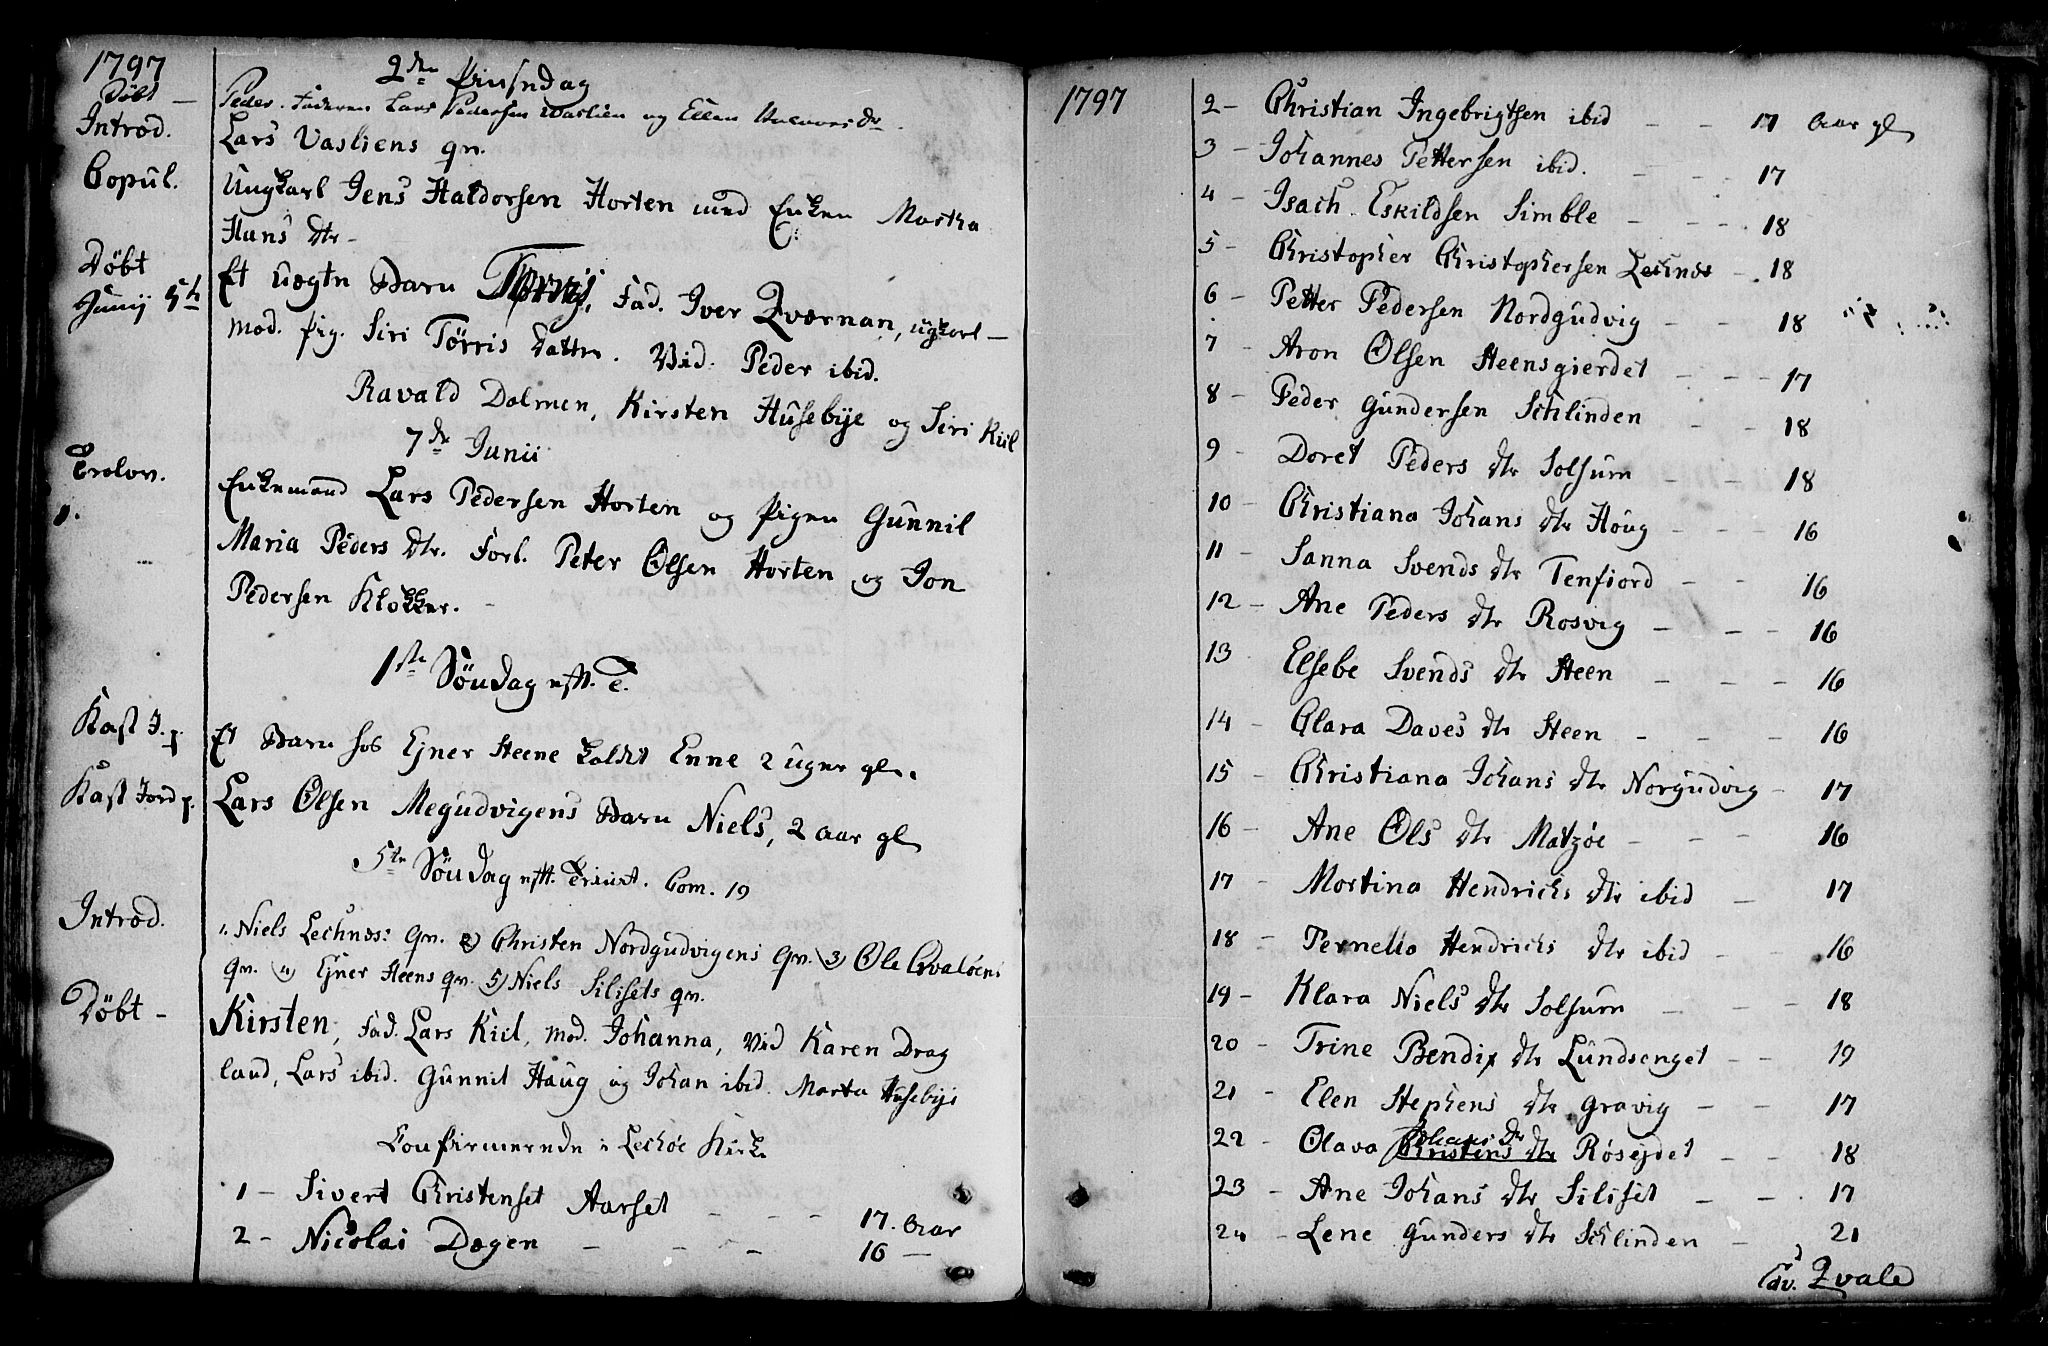 1797
2den Pinsedag
Døbt —
Peder. Faderen Lars Pedersen Vaslien og Ellen Halvors Dr.
Introd.
Lars Vasliens qv.
Copul.
Ungkarl Jens Haldorsen Horten med Enken Martha
Hans dtr —
Døbt
Et uægte Barn, Fad. Iver Qværnan, ugkarl —
Junij 5te
Mod. pig. Siri Tørris datter. Vid. Peder ibid.
Ravald Dolmen, Kirsten Husebÿe og Siri Kiil
7de Junii
Trolov.
Enkemand Lars Pedersen Horten og pigen Gunnil
1.
Maria Peders dtr. Forl. Peter Olsen Horten og Jon
Pedersen Klokker. —
1ste Søndag eft. T.
Kast J. p.
Et Barn hos Ejner Steene kaldet Enne 2 uger gl.
Kast Jord p.
Lars Olsen Megudvigens Barn Niels, 2 aar gl
5te Søndag eft. Trinit. Com. 19
Introd.
1. Niels Lechnæs: Qv. 2) Christen Nordgudvigens Qv. 3) Ole Qvaløens
Qv. 4) Ejner Steens qv. 5) Niels Silisets qv.
Døbt —
Kirsten, Fad. Lars Kiil, Mod. Johanna, Vid Karen Drag
land, Lars ibid. Gunnil Haug og Johan ibid. Marta Husebÿe
Confirmerede i Lechøe Kirke
1 — Sivert Christenset Aarset — — — 17. Aar
2 — Nicolai Dægen — — — 16 —
1797
2 — Christian Ingebrigtsen ibid — — 17 Aar gl
3 — Johannes Pettersen ibid. — — — 17
4 — Isach Eskildsen Simble — — — 18
5 — Christopher Christophersen Lechnæs — 18
6 — Petter Pedersen Nordgudvig — — 18
7 — Aron Olsen Steensgierdet — — — 17
8 — Peder Gundersen Schlinden — — 18
9 — Doret Peders dtr Solsum — — 18
10 — Christiana Johans dtr Houg — — — 16
11 — Sanna Svends dtr Tenfiord — — 16
12 — Ane Peders dtr Rosvig — — — 16
13 Elsebe Svends dtr Steen — — — 16
14 — Clara Daves dtr Steen — — — 16
15 — Christiana Johans dtr Norgudvig — 17
16 — Ane Ols dtr Matzøe — — — 16
17 — Martina Hendrichs dtr ibid — — 17
18 — Pernello Hendrichs dtr ibid — — 16
19 — Klara Niels dtr Solsum — — 18
20 — Trine Bendix dtr Lundsenget — — 19
21 — Elen Stephens dtr Gravig — — 17
Johans Dr
22 — Olava Christens dtr Røsejdet — — 18
23 — Ane Johans dtr Siliset — — 17
24 — Lene Gunders dtr Schlinden — 21
Qvale